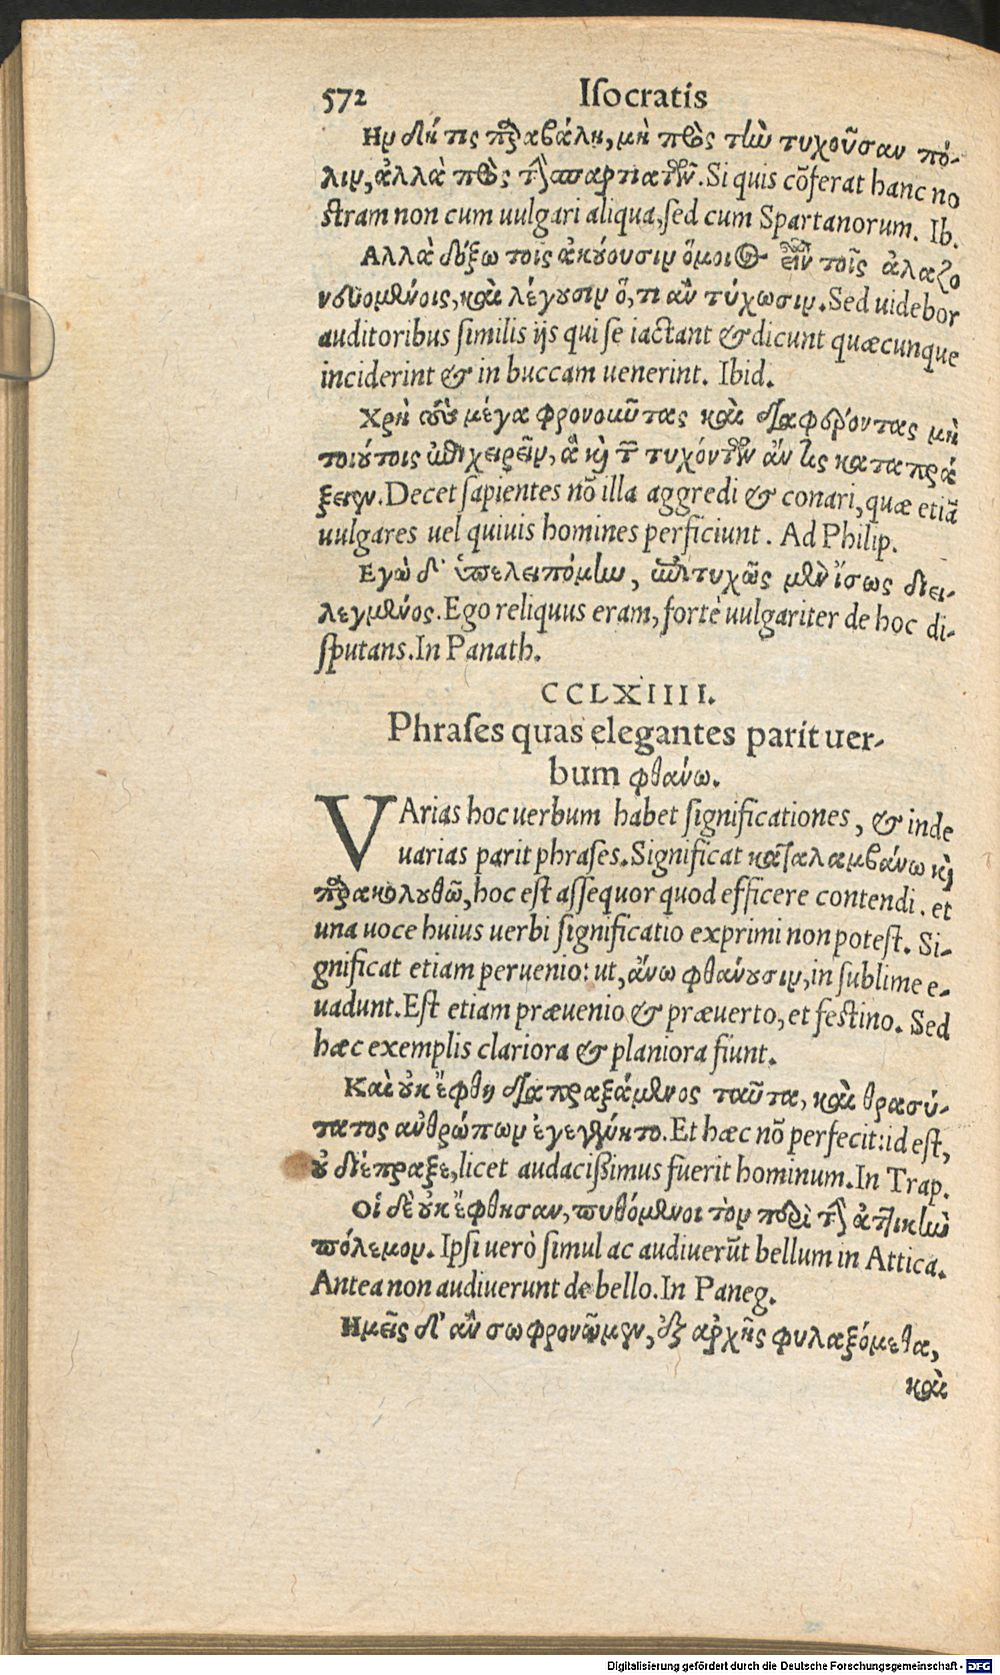 572 Iſocratis
Ην δή τις παραβάλῃ, μὴ πρὸς τὴν τυχοῦσαν πό-
λιν, ἀλλὰ πρὸς τὴν σπαρτιατῶν. Si quis cōferat hanc no
ſtram non cum uulgari aliqua, ſed cum Spartanorum. Ib.
Αλλὰ δόξω τοῖς ἀκούουσιν ὅμοιος εἶναι τοῖς ἀλαζο
νευομένοις, καὶ λέγουσιν ὅ, τι ἂν τύχωσιν. Sed uidebor
auditoribus ſimilis ijs qui ſe iactant & dicunt quæcunque
inciderint & in buccam uenerint. Ibid.
Χρὴ τοὺς μέγα φρονοῦντας καὶ διαφέροντας μὴ
τοιούτοις ἐπιχειρεῖν, ἃ καὶ τῶν τυχόντων ἄν τις καταπρά
ξειεν. Decet ſapientes nō illa aggredi & conari, quæ etiā
uulgares uel quiuis homines perficiunt. Ad Philip.
Εγὼ δ' ὑπελειπόμην, ἐπιτυχῶς μὲν ἴσως διει-
λεγμένος. Ego reliquus eram, fortè uulgariter de hoc di-
ſputans. In Panath.
CCLXIIII.
Phraſes quas elegantes parit uer-
bum φθάνω.
VArias hoc uerbum habet ſignificationes, & inde
uarias parit phraſes. Significat καταλαμβάνω καὶ
παρακολουθῶ, hoc eſt aſſequor quod efficere contendi. et
una uoce huius uerbi ſignificatio exprimi non poteſt. Si-
gnificat etiam peruenio: ut, ἄνω φθάνουσιν, in ſublime e-
uadunt. Eſt etiam præuenio & præuerto, et feſtino. Sed
hæc exemplis clariora & planiora fiunt.
Καὶ οὐκ ἔφθη διαπραξάμενος ταῦτα, καὶ θρασύ-
τατος ἀνθρώπων ἐγεγένητο. Et hæc nō perfecit: id eſt,
οὐ διέπραξε, licet audacißimus fuerit hominum. In Trap.
Οἱ δὲ οὐκ ἔφθησαν, πυθόμενοι τὸν περὶ τὴν ἀττικὴν
πόλεμον. Ipſi uerò ſimul ac audiuerūt bellum in Attica.
Antea non audiuerunt de bello. In Paneg.
Ημεῖς δ' ἂν σωφρονῶμεν, ἐξ ἀρχῆς φυλαξόμεθα,
καὶ
Digitalisierung gefördert durch die Deutsche Forschungsgemeinschaft - DFG